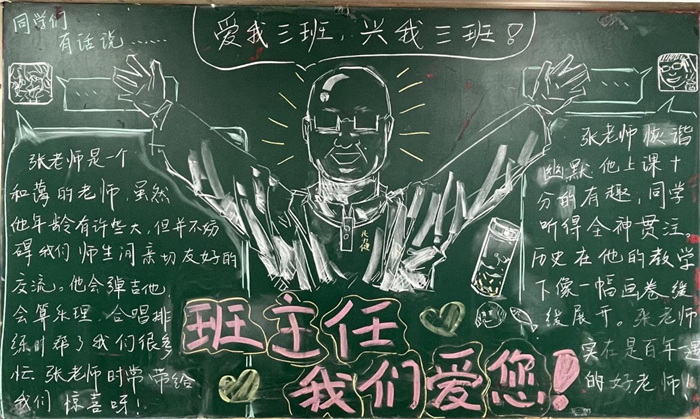 同学们
有话说……
爱我三班，兴我三班！
张老师是一个
和蔼的老师，虽然
他年龄有许些大，但并不妨
碍我们师生间亲切友好的
交流。他会弹吉他
会算乐理，合唱排
练时帮了我们很多
忙。张老师时常带给
我们惊喜呀！
张老师诙谐
幽默，他上课十
分的有趣，同学
听得全神贯注。
历史在他的教学
下像一幅画卷缓
缓展开。张老师
实在是百年一遇
的好老师！
班主任
我们爱您！